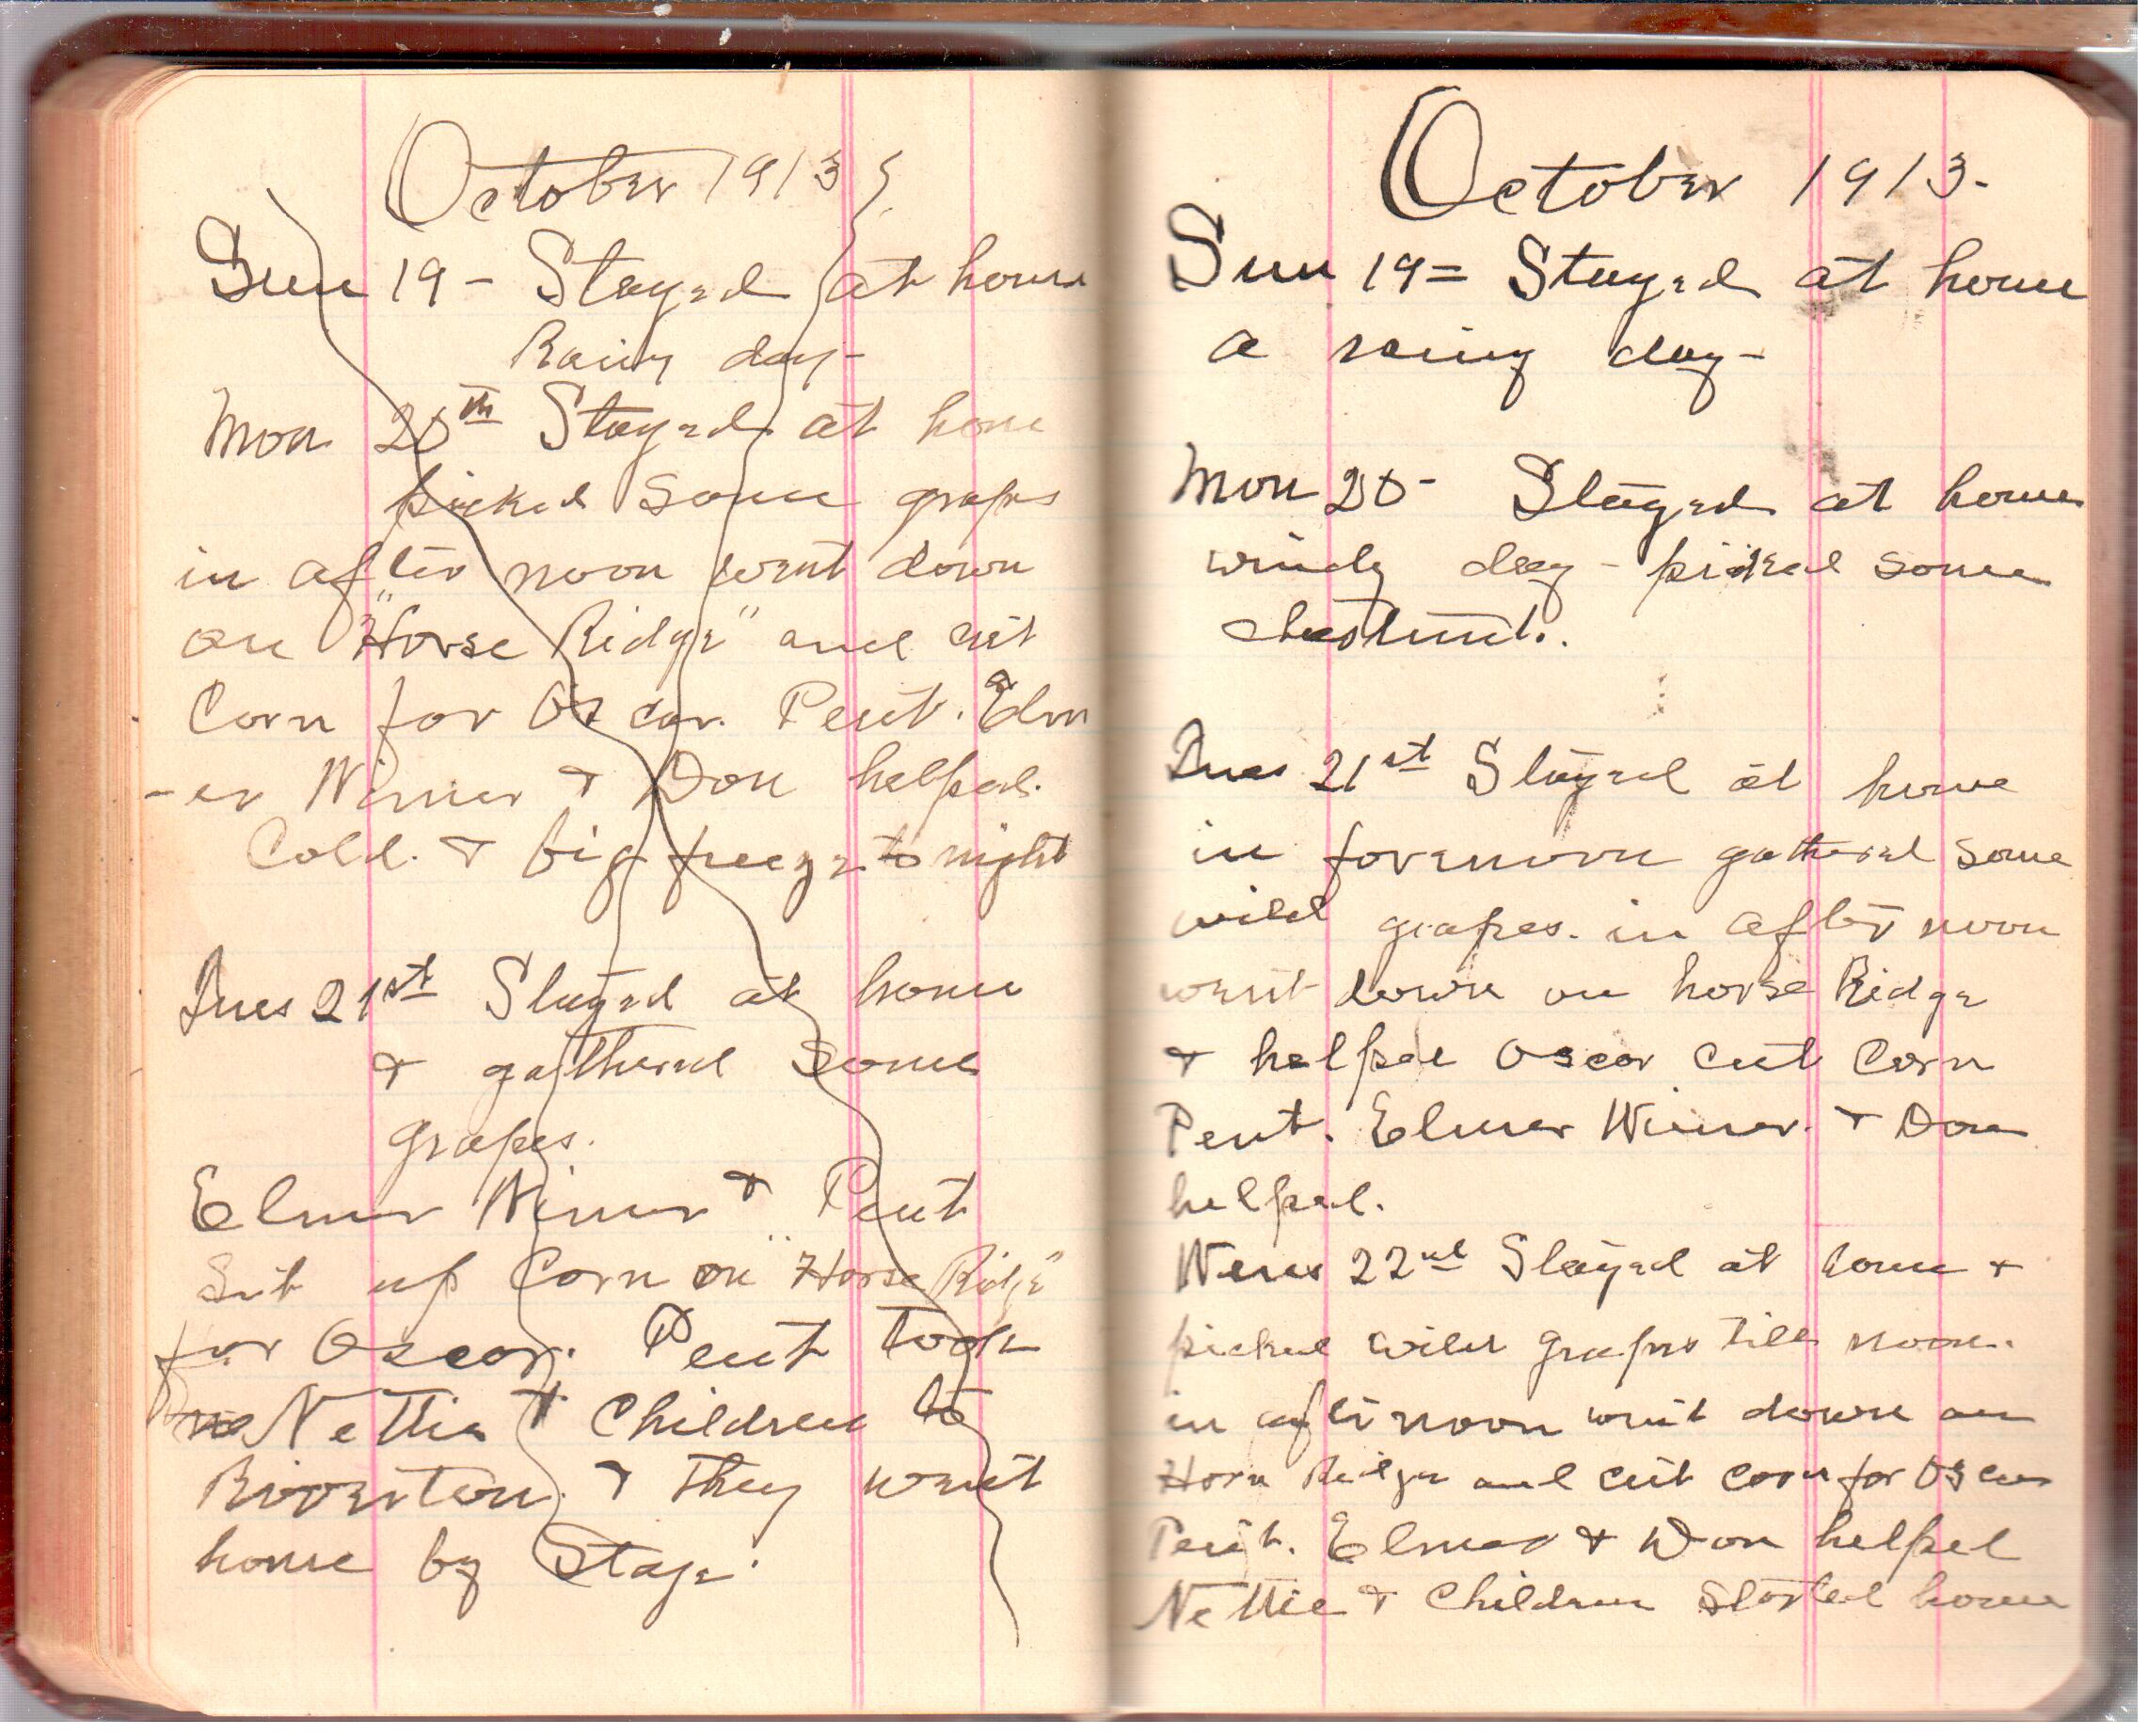 October 1913
Sun 19 - Stayed at home
Rainy day -
Mon 20th Stayed at home
picked some grapes
in after noon went down
on "Horse Ridge" and cut
Corn for Oscar. Pent. Elm
-er Wimer & Don helped.
Cold. & big freeze to night
Tues 21st Stayed at home
& gathered some
grapes.
Elmer Wimer & Pent
Sut up Corn on "Horse Ridge"
for Oscar. Pent took
Nettie & Children to
Riverton. & they went
home by Stage.
October 1913.
Sun 19 = Stayed at home
a rainy day -
Mon 20 - Stayed at home
windy day - picked some
chestnuts.
Tues 21st Stayed at home
in forenoon gathered some
wild grapes. in after noon
went down on horse Ridge
& helped Oscar cut Corn
Pent. Elmer Wimer. & Don
helped.
Wens 22nd Stayed at home &
picked wild grapes till noon.
in after noon went down on
Horse Ridge and cut corn for Oscar
Pent. Elmer & Don helped
Nettie & Children Started home